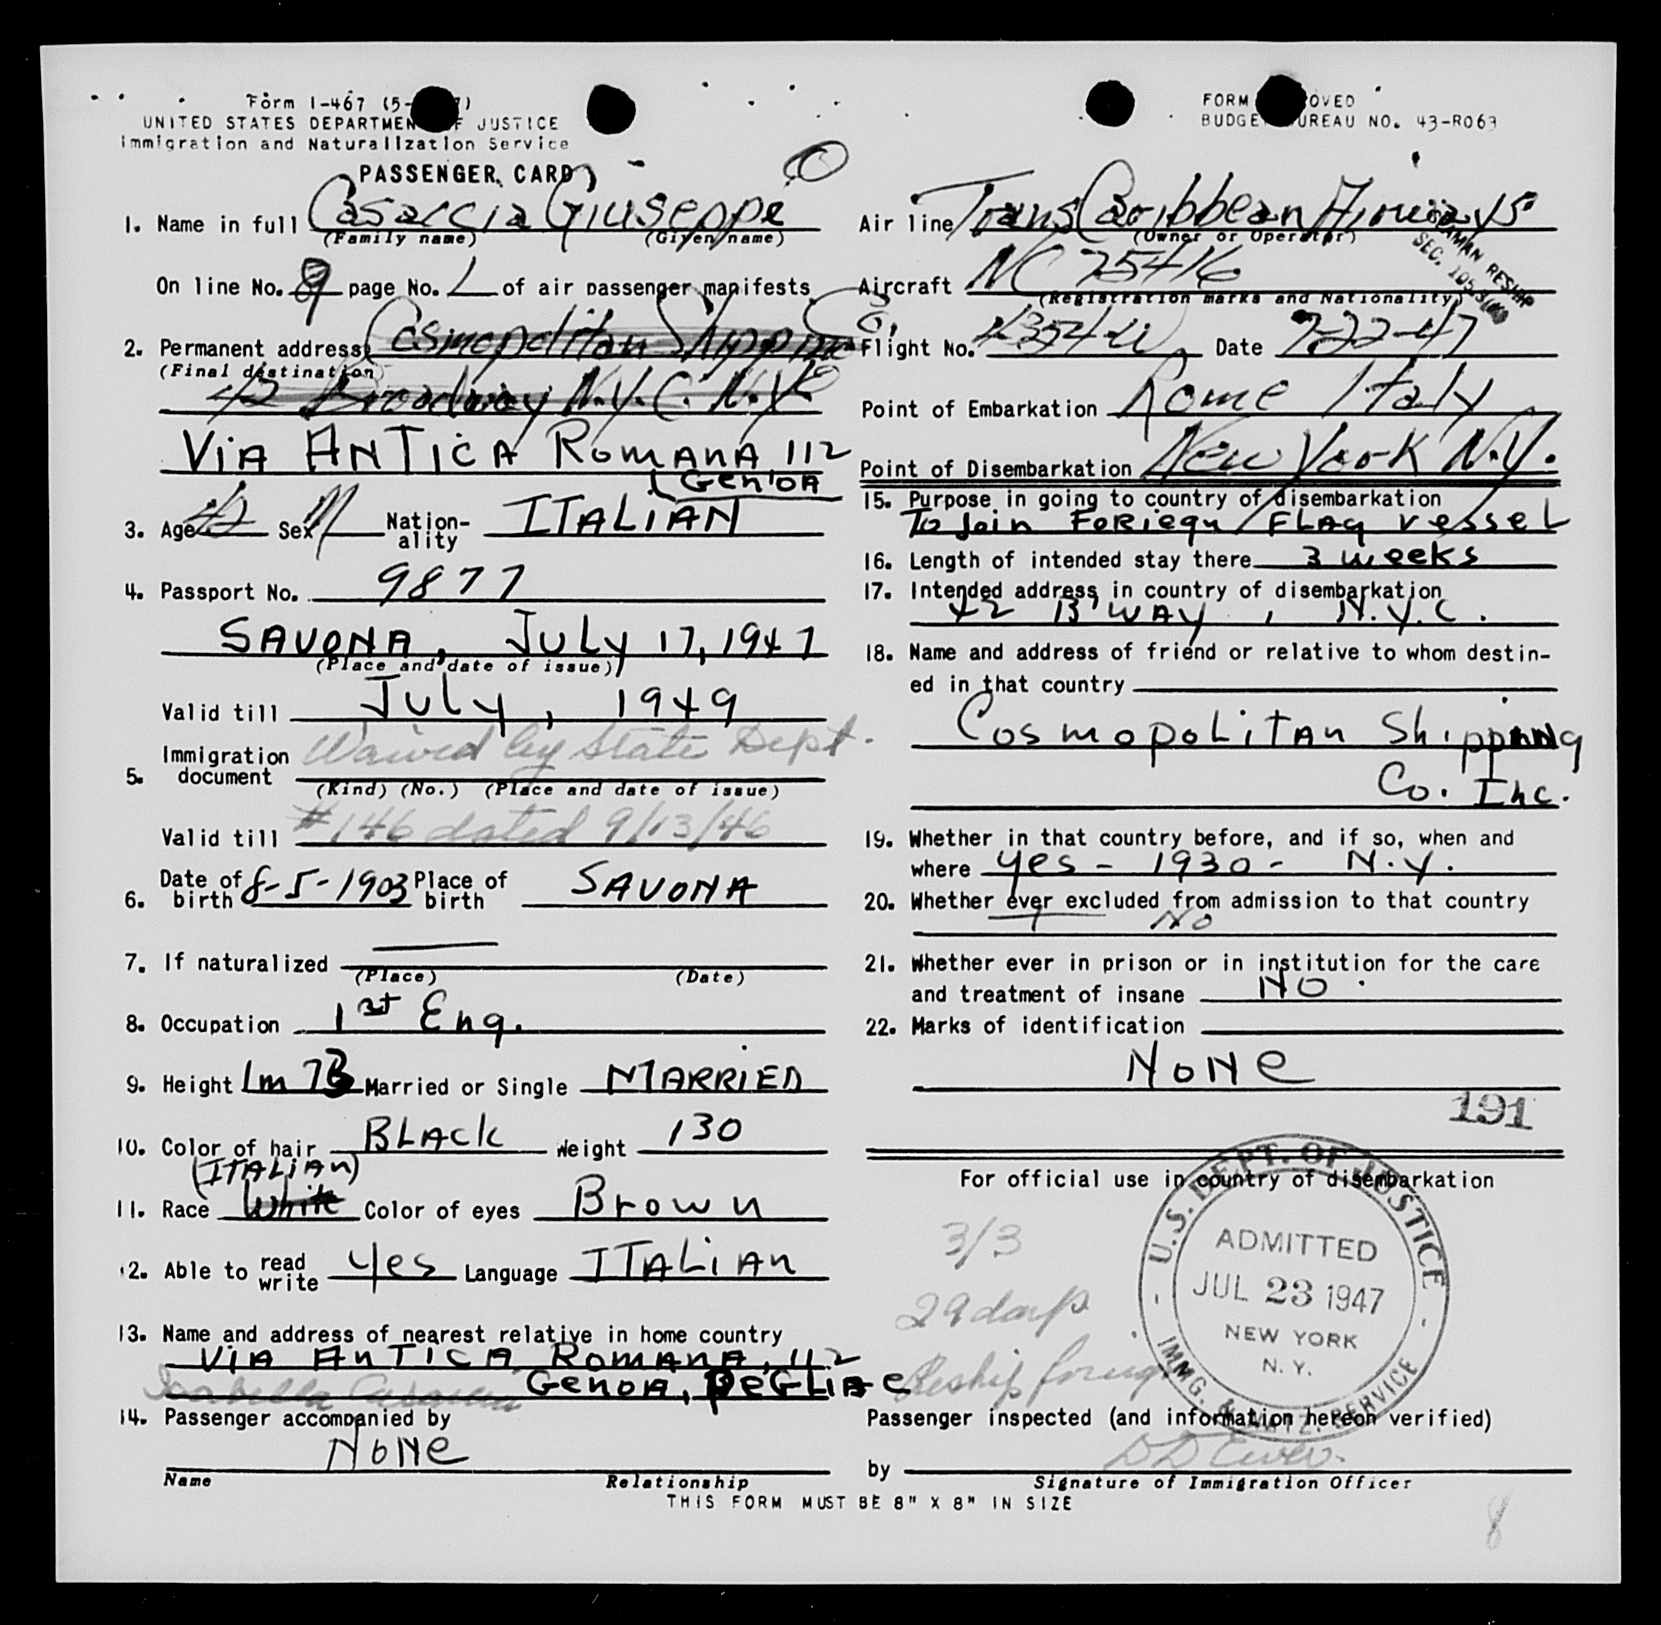 Form I-467 (5-
UNITED STATES DEPARTMENT OF JUSTICE
Immigration and Naturalization Service
PASSENGER CARD
1. Name in full Casaccia Giuseppe
(Family name) (Given name)
On line No. 9 page No. 1 of air passenger manifests
2. Permanent address Cosmopolitan Shipping Co.
(Final destination)
42 Broadway N.Y.C. N.Y.
ViA ANTiCA RomANA 112
GENOA
3. Age 42 Sex M Nation-ality ITALIAN
4. Passport No. 9877
SAVONA, JULY 17, 1947
(Place and date of issue)
Valid till JULY, 1949
5. Immigration document Waived by State Dept.
(Kind) (No.) (Place and date of issue)
Valid till #146 dated 9/13/46
6. Date of birth 8-5-1903 Place of birth SAVONA
7. If naturalized
(Place) (Date)
8. Occupation 1st Eng.
9. Height 1m 73 Married or Single MARRIED
10. Color of hair BLACK Weight 130
(ITALIAN)
11. Race White Color of eyes Brown
12. Able to read write Yes Language ITALiAN
13. Name and address of nearest relative in home country
ViA ANTiCA ROMANA, 112
GENOA, PEGLIe
14. Passenger accompanied by
NONe
Name Relationship
FORM APPROVED
BUDGET BUREAU NO. 43-R063
Air line Trans Caribbean Airways
(Owner or Operator)
SEAMAN RESHIP
SEC.
Aircraft NC 75416
(Registration marks and Nationality)
Flight No. Date 7-22-47
Point of Embarkation Rome Italy
Point of Disembarkation New York N.Y.
15. Purpose in going to country of disembarkation
To Join FoRiegn FLAg vesseL
16. Length of intended stay there 3 weeks
17. Intended address in country of disembarkation
42 B'WAY, N.Y.C.
18. Name and address of friend or relative to whom destin-
ed in that country
CosmopoLiTAn Shipping
Co. Inc.
19. Whether in that country before, and if so, when and
where yes - 1930 - N.Y.
20. Whether ever excluded from admission to that country
No
21. Whether ever in prison or in institution for the care
and treatment of insane NO.
22. Marks of identification
NoNe
191
For official use in country of disembarkation
U.S. DEPT. OF JUSTICE
ADMITTED
JUL 23 1947
NEW YORK
N. Y.
IMMG. & NATZ. SERVICE
3/3
29 days
Reship foreign
Passenger inspected (and information hereon verified)
by
Signature of Immigration Officer
THIS FORM MUST BE 8" X 8" IN SIZE
8